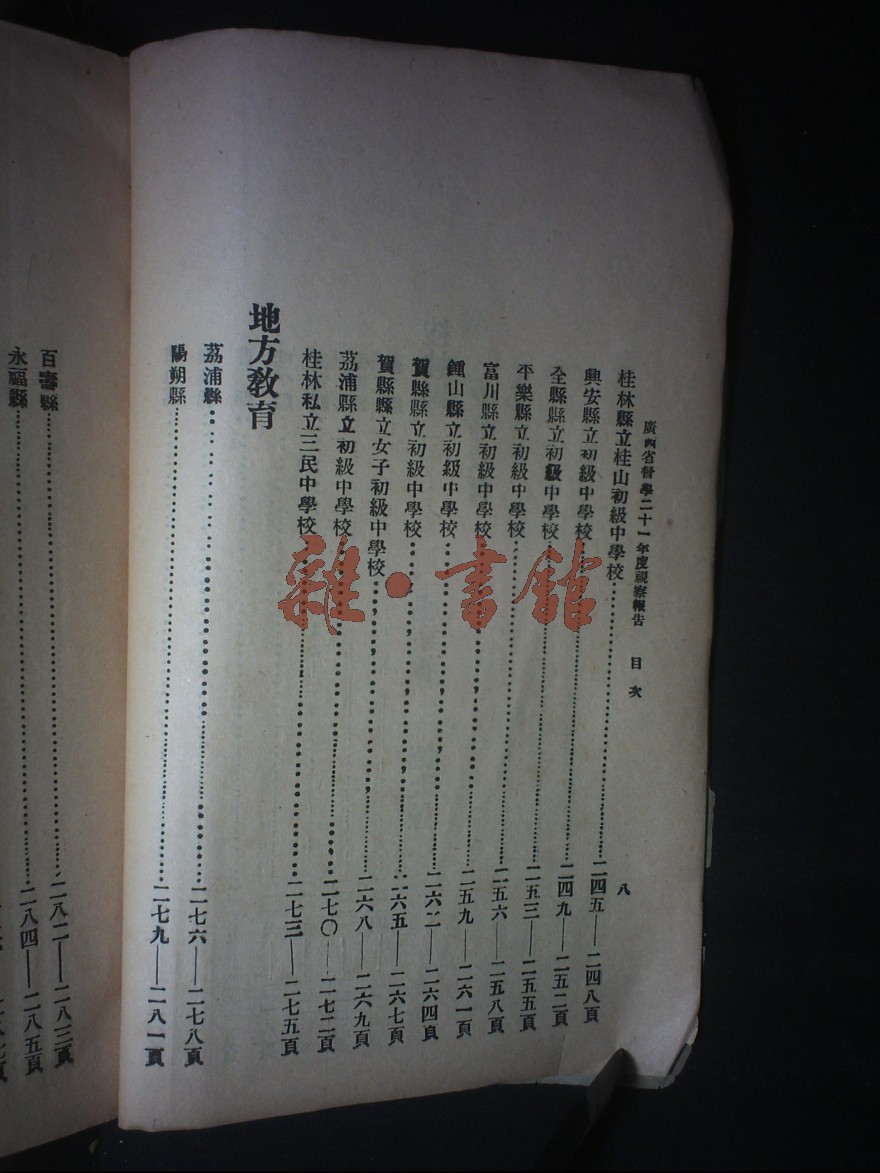 廣西省督學二十一年度視察報告 目次 八
桂林縣立桂山初級中學校…………二四五——二四八頁
興安縣立初級中學校…………二四九——二五二頁
全縣縣立初級中學校…………二五三——二五五頁
平樂縣立初級中學校…………二五六——二五八頁
富川縣立初級中學校…………二五九——二六一頁
鍾山縣立初級中學校…………二六二——二六四頁
賀縣縣立初級中學校…………二六五——二六七頁
賀縣縣立女子初級中學校…………二六八——二六九頁
荔浦縣立初級中學校…………二七〇——二七二頁
桂林私立三民中學校…………二七三——二七五頁
地方教育
荔浦縣…………二七六——二七八頁
陽朔縣…………二七九——二八一頁
百壽縣…………二八二——二八三頁
永福縣…………二八四——二八五頁
雜·書館